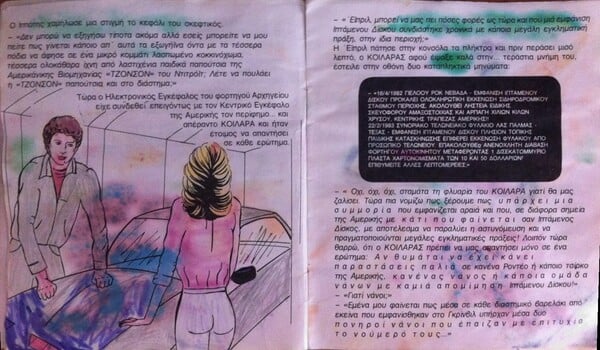 Ο Ίππατος χαμήλωσε μια στιγμή το κεφάλι του σκεφτικός.
– «Δεν μπορώ να εξηγήσω τίποτα ακόμα αλλά εσείς μπορείτε να μου
πείτε πως γίνεται κάποιο απ' αυτά τα εξωγήινα όντα με τα τέσσερα
πόδια να άφησε σε ένα μικρό κομμάτι λασπωμένο κοκκινόχωμα,
τέσσερα ολοκάθαρα ίχνη από λαστιχένια παιδικά παπούτσια της
Αμερικάνικης Βιομηχανίας «ΤΖΟΝΣΟΝ» του Ντιτρόιτ; Λέτε να πουλάει
η «ΤΖΟΝΣΟΝ» παπούτσια και στο διάστημα;»
Τώρα ο Ηλεκτρονικός Εγκέφαλος του φορτηγού Αρχηγείου
είχε συνδεθεί επειγόντως με τον Κεντρικό Εγκέφαλο
της Αμερικής τον περίφημο... και
απέραντο ΚΟΙΛΑΡΑ και ήταν
έτοιμος να απαντήσει
σε κάθε ερώτημα.
– «Έιπριλ, μπορεί να μας πει πόσες φορές ως τώρα και πού μια εμφάνιση
Ιπτάμενου Δίσκου συνδιάστηκε χρονικά με κάποια μεγάλη εγκληματική
πράξη, στην ίδια περιοχή;»
Η Έιπριλ πάτησε στην κονσόλα τα πλήκτρα και πριν περάσει μισό
λεπτό, ο ΚΟΙΛΑΡΑΣ αφού έψαξε καλά στην ... τεράστια μνήμη του,
έστειλε στην οθόνη δυο καταπληκτικά μηνύματα:
«16/4/1982 ΠΕΛΟΟΥ ΡΟΚ ΝΕΒΑΔΑ - ΕΜΦΑΝΙΣΗ ΙΠΤΑΜΕΝΟΥ
ΔΙΣΚΟΥ ΠΡΟΚΑΛΕΙ ΟΛΟΚΛΗΡΩΤΙΚΗ ΕΚΚΕΝΩΣΗ ΣΙΔΗΡΟΔΡΟΜΙΚΟΥ
ΣΤΑΘΜΟΥ ΠΕΡΙΟΧΗΣ. ΑΚΟΛΟΥΘΕΙ ΛΗΣΤΕΙΑ ΕΙΔΙΚΗΣ
ΣΚΕΥΟΦΟΡΟΥ ΑΜΑΞΟΣΤΟΙΧΙΑΣ ΚΑΙ ΑΡΠΑΓΗ ΧΙΛΙΩΝ ΚΙΛΩΝ
ΧΡΥΣΟΥ. ΚΕΝΤΡΙΚΗΣ ΤΡΑΠΕΖΗΣ ΑΜΕΡΙΚΗΣ!
22/2/1983 ΣΥΝΟΡΙΑΚΟ ΤΕΛΩΝΕΙΑΚΟ ΦΥΛΑΚΙΟ ΛΑΣ ΠΑΛΜΑΣ,
ΤΕΞΑΣ - ΕΜΦΑΝΙΣΗ ΙΠΤΑΜΕΝΟΥ ΔΙΣΚΟΥ ΠΛΗΣΙΟΝ ΤΟΠΙΚΗΣ
ΠΑΙΔΙΚΗΣ ΚΑΤΑΣΚΗΝΩΣΗΣ ΕΠΙΦΕΡΕΙ ΕΚΚΕΝΩΣΗ ΦΥΛΑΚΙΟΥ ΑΠΟ
ΠΡΟΣΩΠΙΚΟ ΤΕΛΩΝΕΙΟΥ. ΕΠΑΚΟΛΟΥΘΕΙ ΑΝΕΝΟΧΛΗΤΗ ΔΙΑΒΑΣΗ
ΦΟΡΤΗΓΟΥ ΑΥΤΟΚΙΝΗΤΟΥ ΜΕΤΑΦΕΡΟΝΤΑΣ 1 ΔΙΣΕΚΑΤΟΜΜΥΡΙΟ
ΠΛΑΣΤΑ ΧΑΡΤΟΝΟΜΙΣΜΑΤΑ ΤΩΝ 10 ΚΑΙ 50 ΔΟΛΛΑΡΙΩΝ!
ΕΠΙΘΥΜΕΙΤΕ ΑΛΛΕΣ ΛΕΠΤΟΜΕΡΕΙΕΣ;»
– «Όχι, όχι, όχι, σταμάτα τη φλυαρία του ΚΟΙΛΑΡΑ γιατί θα μας
ζαλίσει. Τώρα πια νομίζω πως ξέρουμε πως υπάρχει μια
συμμορία που εμφανίζεται αραιά και που, σε διάφορα σημεία
της Αμερικής με κάτι που φαίνεται σαν Ιπτάμενος
Δίσκος, με αποτέλεσμα να παραλύει η αστυνόμευση και να
πραγματοποιούνται μεγάλες εγκληματικές πράξεις! Λοιπόν τώρα
θαρρώ, ότι ο ΚΟΙΛΑΡΑΣ πρέπει να μας απαντήσει μόνο σε ένα
ερώτημα: Αν θυμάται να έχει κάνει
παραστάσεις παλιά σε κανένα Ροντέο ή κάποιο τσίρκο
της Αμερικής, κανένας νάνος ή κάποια ομάδα
νάνων με καμιά απομίμηση Ιπτάμενου Δίσκου!»
– «Γιατί νάνοι;»
– «Εμένα μου φαίνεται πως μέσα σε κάθε διαστημικό βαρελάκι από
εκείνα που εμφανίσθηκαν στο Γκρίνβιλ υπήρχαν μέσα δυο
πονηροί νάνοι που έπαιζαν με επιτυχία
το νούμερό τους ...»